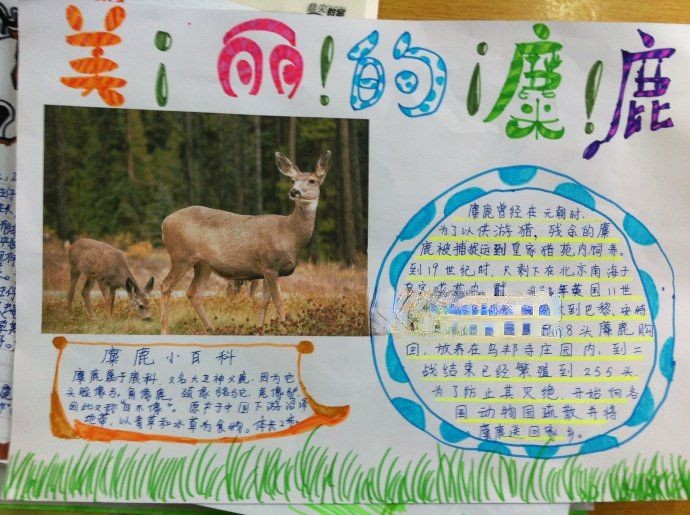 美丽!的麋!鹿
麋鹿小百科
麋鹿属于鹿科,又名大卫神父鹿,因为它
头脸像马、角像鹿、颈像骆驼、尾像驴
因此又称四不像。原产于中国下游沼泽
地带,以青草和水草为食物。体长2米。
麋鹿曾经在元朝时,
为了以供游猎,残余的麋
鹿被捕捉运到皇家猎苑内饲养。
到19世纪时,只剩下在北京南海子
英国11世
到巴黎,
18头麋鹿购
回,放养在乌邦寺庄园内,到二
战结束已经繁殖到255头,
为了防止其灭绝,开始向各
国动物园疏散并将
麋鹿送回家乡。